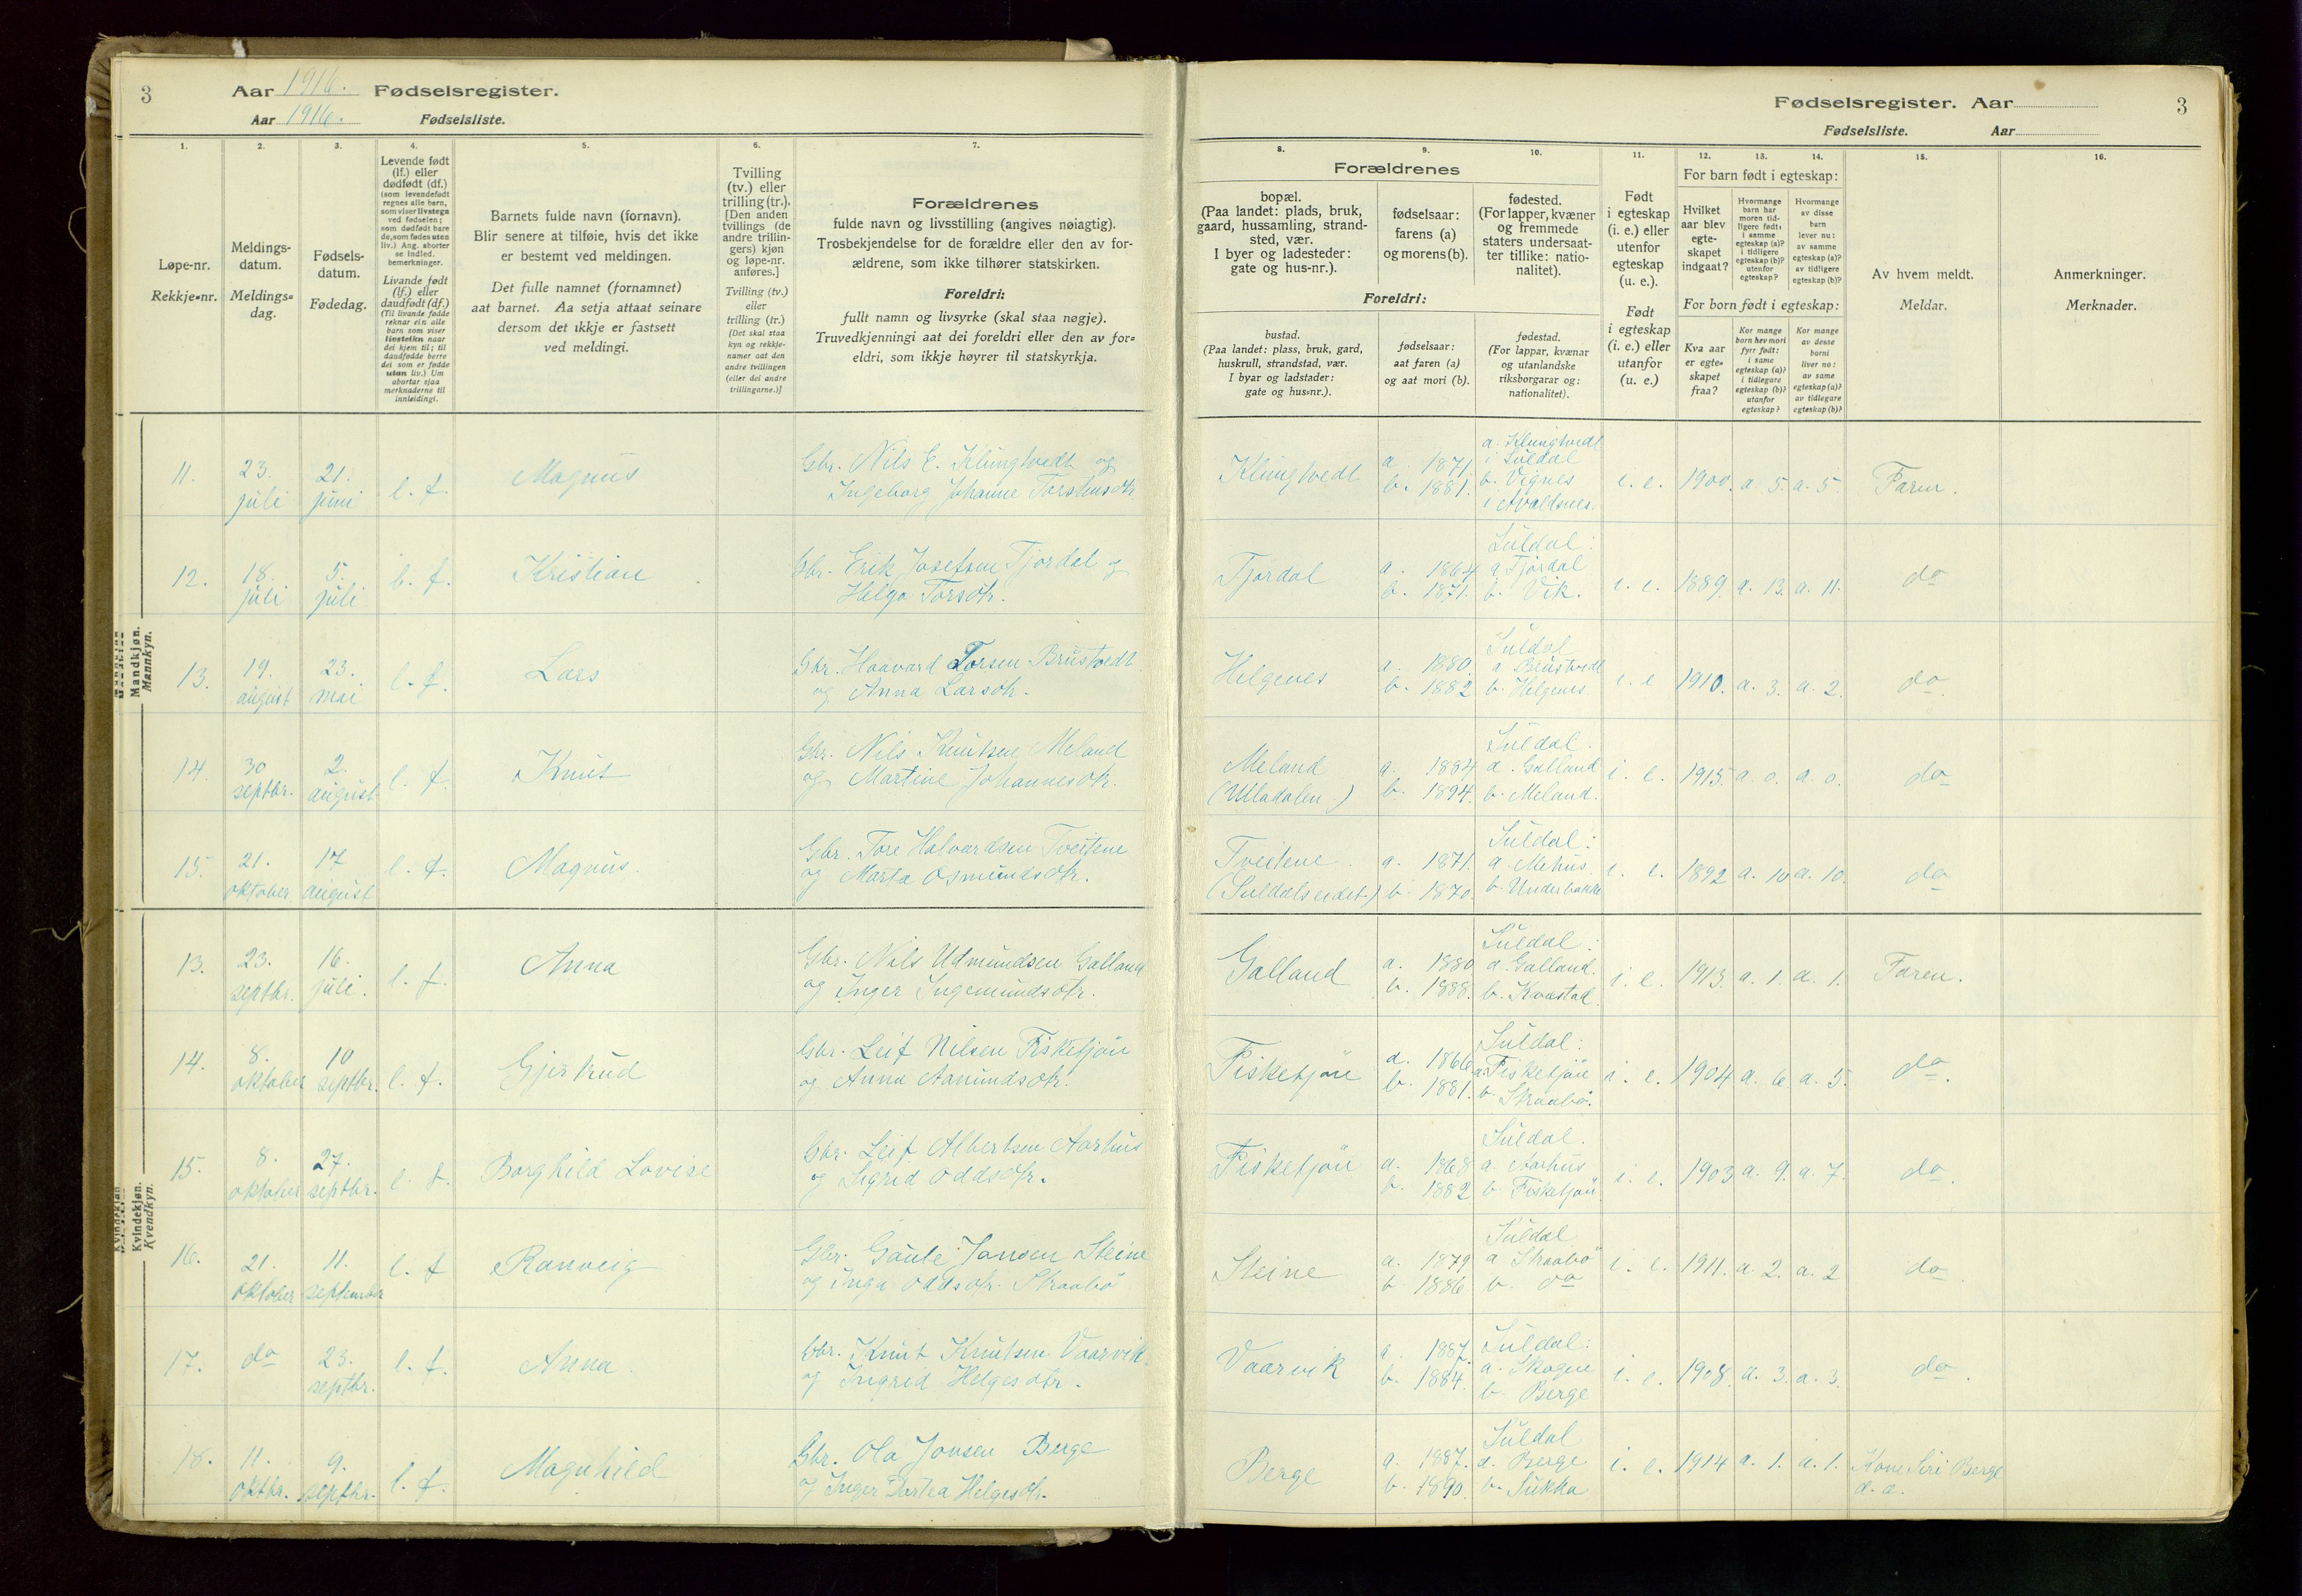 3
Aar 1916. Fødselsregister.
Aar 1916. Fødselsliste.
Fødselsregister. Aar
3
Fødselsliste. Aar
1.
Løpe-nr.
Rekkje-nr.
2.
Meldings-
datum.
Meldings-
dag.
3.
Fødsels-
datum.
Fødedag.
4.
Levende født
(lf.) eller
dødfødt (df.)
(som levendefødt
regnes alle barn,
som viser livstegn
ved fødselen;
som dødfødt bare
de, som fødes uten
liv.) Ang. aborter
se indled.
bemerkninger.
Livande født
(lf.) eller
daudfødt (df.)
(Til livande fødde
reknar ein alle
barn som viser
livsteikn naar
dei kjem til; til
daudfødde berre
dei som er fødde
utan liv.) Um
abortar sjaa
merknaderne til
innleidingi.
5.
Barnets fulde navn (fornavn).
Blir senere at tilføie, hvis det ikke
er bestemt ved meldingen.
Det fulle namnet (fornamnet)
aat barnet. Aa setja attaat seinare
dersom det ikkje er fastsett
ved meldingi.
6.
Tvilling
(tv.) eller
trilling (tr.).
[Den anden
tvillings (de
andre trillin-
gers) kjøn
og løpe-nr.
anføres.]
Tvilling (tv.)
eller
trilling (tr.)
[Det skal staa
kyn og rekkje-
numer aat den
andre tvillingen
(eller dei andre
trillingarne.)]
7.
Forældrenes
fulde navn og livsstilling (angives nøiagtig).
Trosbekjendelse for de forældre eller den av for-
ældrene, som ikke tilhører statskirken.
Foreldri:
fullt namn og livsyrke (skal staa nøgje).
Truvedkjenningi aat dei foreldri eller den av for-
eldri, som ikkje høyrer til statskyrkja.
8. 9. 10.
Forældrenes
bopæl.
(Paa landet: plads, bruk,
gaard, hussamling, strand-
sted, vær.
I byer og ladesteder:
gate og hus-nr.).
fødselsaar:
farens (a)
og morens (b).
fødested.
(For lapper, kvæner
og fremmede
staters undersaat-
ter tillike: natio-
nalitet).
Foreldri:
bustad.
(Paa landet: plass, bruk, gard,
huskrull, strandstad, vær.
I byar og ladstader:
gate og hus-nr.).
fødselsaar:
aat faren (a)
og aat mori (b).
fødestad.
(For lappar, kvænar
og utanlandske
riksborgarar og:
nationalitet).
11.
Født
i egteskap
(i. e.) eller
utenfor
egteskap
(u. e.).
Født
i egteskap
(i. e.) eller
utanfor
(u. e.)
12. 13. 14.
For barn født i egteskap:
Hvilket
aar blev
egte-
skapet
indgaat?
Hvormange
barn har
moren tid-
ligere født:
i samme
egteskap (a)?
i tidligere
egteskap (b)?
utenfor
egteskap?
Hvormange
av disse
barn
lever nu:
av samme
egteskap (a)?
av tidligere
egteskap (b)?
For born født i egteskap:
Kva aar
er egte-
skapet
fraa?
Kor mange
born hev mori
fyrr født:
i same
egteskap (a)?
i tidlegare
egteskap (b)?
utanfor
egteskap?
Kor mange
av desse
borni
liver no:
av same
egteskap (a)?
av tidlegare
egteskap (b)?
15.
Av hvem meldt.
Meldar.
16.
Anmerkninger.
Merknader.
Mandkjøn.
Mannkyn.
11. 23. juli 21. juni l. f. Magnus
Gbr. Nils E. Klungtvedt og
Ingeborg Johanne Torstensdtr.
Klungtvedt a. 1871. b. 1881.
a. Klungtvedt
i Suldal
b. Vignes
i Avaldsnes.
i. e. 1900. a. 5. a. 5. Faren.
12. 18. juli 5. juli l. f. Kristian
Gbr. Erik Josefsen Fjordal og
Helga Torsdtr.
Fjordal a. 1864 b. 1871.
Suldal:
a. Fjordal
b. Vik.
i. e. 1889. a. 13. a. 11. do
13. 19. august 23. mai l. f. Lars
Gbr. Haavard Torsen Brustvedt
og Anna Larsdtr.
Helgenes a. 1880. b. 1882
Suldal
a. Brustvedt
b. Helgenes
i. e 1910. a. 3. a. 2. do.
14. 30 septbr. 2. august l. f. Knut
Gbr. Nils Knutsen Meland
og Martine Johannesdtr.
Meland
(Ulladalen.)
a. 1884 b. 1894.
Suldal.
a. Galland
b. Meland.
i. e. 1915. a. 0. a. 0. do
15. 21. oktober 17 august l. f. Magnus.
Gbr. Tore Halvardsen Tveitene
og Marta Osmundsdtr.
Tveitene.
(Suldalseidet.)
a. 1871. b. 1870.
Suldal:
a. Mehus.
b. Underbakke
i. e. 1892 a. 10 a. 10. do
Kvindekjøn.
Kvendkyn.
13. 23. septbr. 16. juli. l. f. Anna
Gbr. Nils Udmundsen Galland
og Inger Ingemundsdtr.
Galland a. 1880 b. 1888.
Suldal:
a. Galland.
b. Kvæstad.
i. e. 1913. a. 1. a. 1. Faren.
14. 8. oktober 10 septbr. l. f. Gjertrud
Gbr. Leif Nilsen Fisketjøn
og Anna Aamundsdtr.
Fisketjøn a. 1866 b. 1881.
Suldal:
a. Fisketjøn
b. Straabø.
i. e. 1904 a. 6 a. 5. do.
15. 8. oktober 27. septbr. l. f. Borghild Lovise
Gbr. Leif Albertsen Aarhus
og Sigrid Oddsdtr.
Fisketjøn a. 1868 b. 1882
Suldal.
a. Aarhus
b. Fisketjøn
i. e. 1903 a. 9. a. 7. do.
16. 21. oktober 11. september l. f Ranveig
Gbr. Gaute Jonsen Steine
og Inga Oddsdtr. Straabø
Steine a. 1879 b. 1886
Suldal
a. Straabø
b. do
i. e. 1911. a. 2. a. 2 do.
17. do 23. septbr. l. f. Anna.
Gbr. Knut Knutsen Vaarvik
og Ingrid Helgesdtr.
Vaarvik a. 1887. b. 1884.
Suldal:
a. Skogen
b. Berge
i. e. 1908. a. 3. a. 3. do.
18. 11. oktbr. 9. septbr. l. f. Magnhild
Gbr. Ola Jonsen Berge
og Inger Dortea Helgesdtr.
Berge a. 1887. b. 1890.
Suldal
a. Berge
b. Sukka
i. e. 1914 a. 1. a. 1. Kone Siri Berge